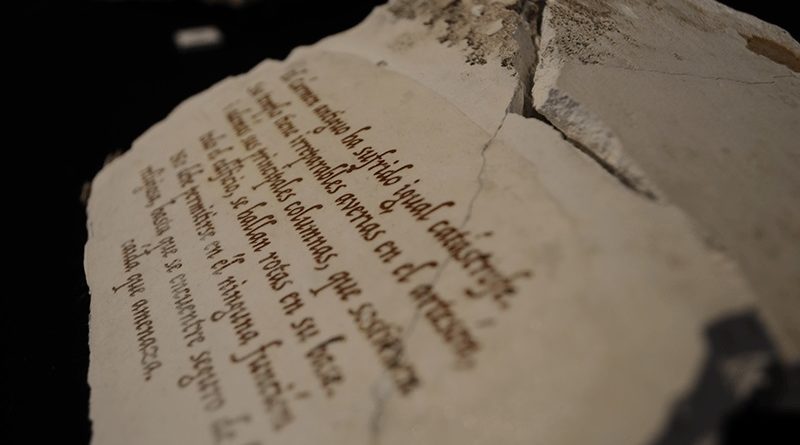 El Carmen antiguo ha sufrido igual catástrofe.
Su tiene irreparables averias en el artesón,
sus principales columnas, que sostienen
todo el edificio, se hallan rotas en su base.
No debe permitirse en él ninguna función
religiosa, hasta que se encuentre seguro de
caída que amenaza.